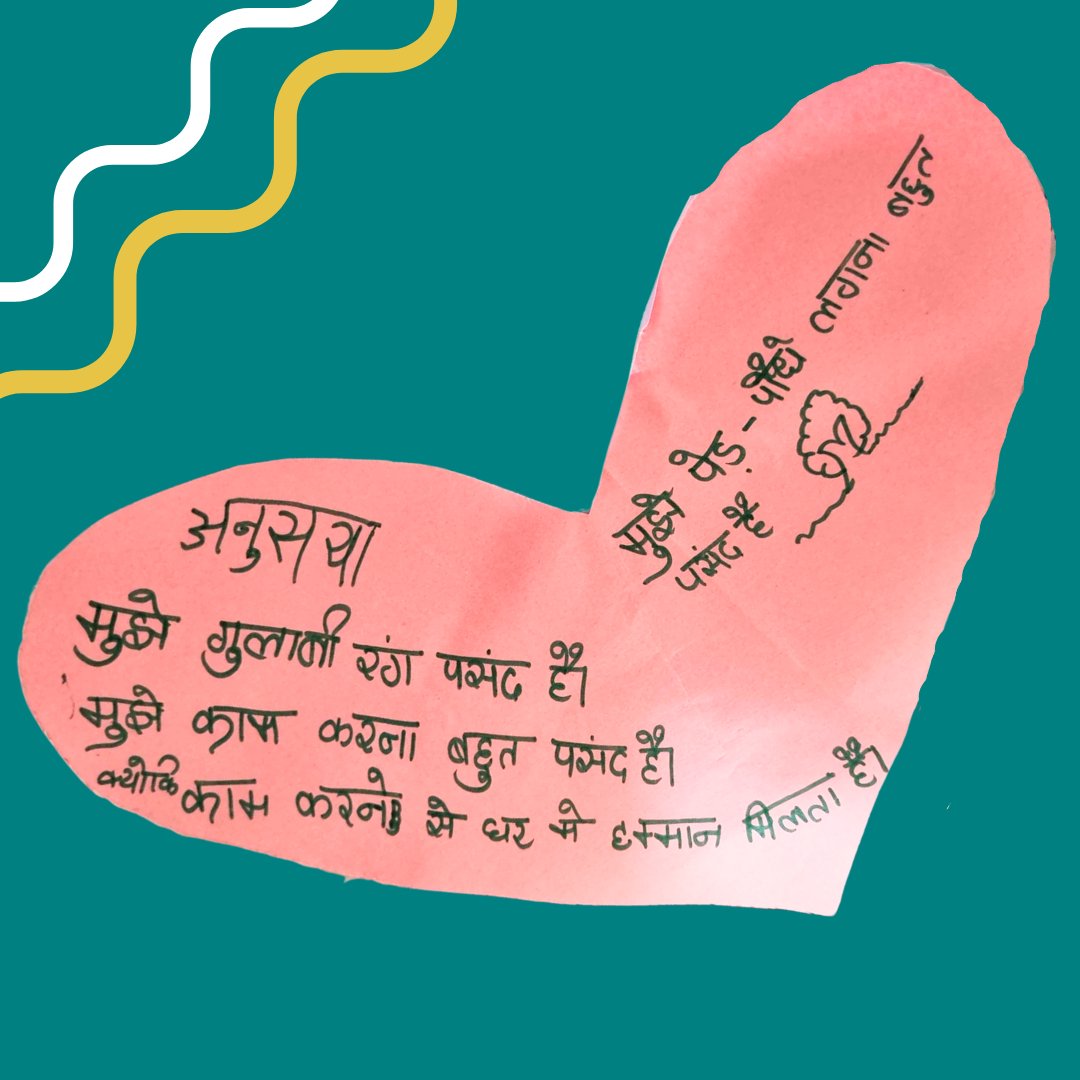 अनुसया
मुझे गुलाबी रंग पसंद है।
मुझे काम करना बहुत पसंद है।
क्योकि काम करने से घर मे सम्मान मिलता है।
मुझे पेड़-पौधे लगाना बहुत
पसंद है